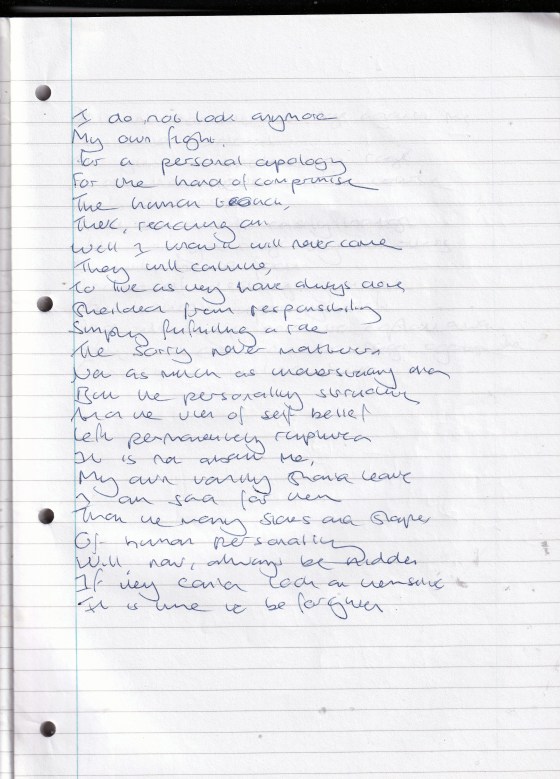 I do not look anymore
My own fight.
For a personal apology
For the hand of compromise
The human touch,
Then, reaching an
Well I know it will never come
They will continue,
to live as they have always done,
Sheilded from responsibility
Simply fulfilling a role
The sorry never mattered
Not as much as understanding did
But the personality
And the of self belief
Left permanently ruptured
It is not about me,
My own vanity should leave
I am sad for them
That the many sides and shapes
Of human personality
Will, now, always be hidden
If they could look at themselves
It is time to be forgiven.